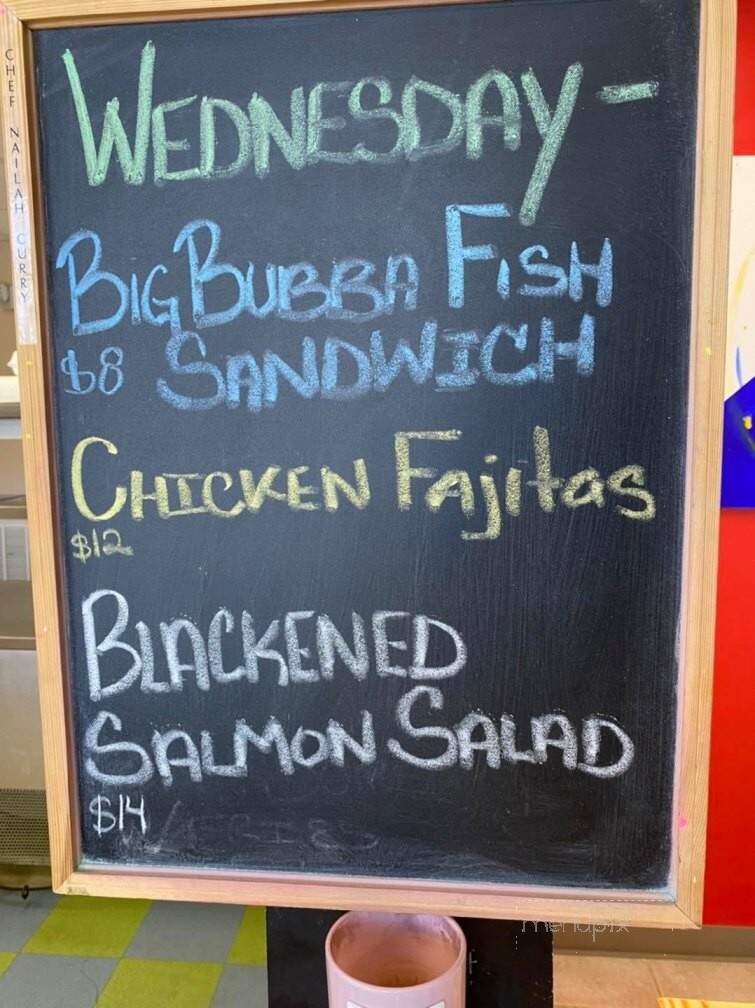 CHEF NAILAH CURRY
WEDNESDAY -
BIG BUBBA FISH
$8 SANDWICH
CHICKEN Fajitas
$12
BLACKENED
SALMON SALAD
$14
menupix